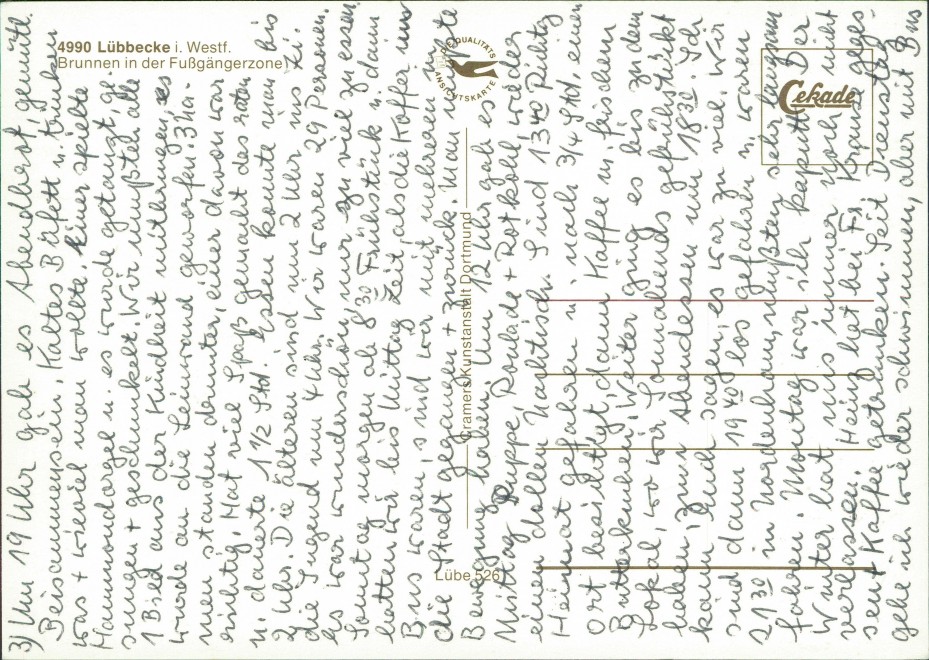 4990 Lübbecke i. Westf.
Brunnen in der Fußgängerzone
DIE QUALITÄTS
ANSICHTSKARTE
Cekade
Cramers Kunstanstalt Dortmund
Lübe 526
3) Um 19 Uhr gab es Abendbrot, gemütl.
Beisammensein. Kaltes Büfett u. trinken
was + wieviel man wollte. Einer spielte
Hammondorgel u. es wurde getanzt, ge-
sungen + geschunkelt. Wir mußten alle
1 Bild aus der Kindheit mitbringen, es
wurde an die Leinwand geworfen. 3 Na-
men standen darunter, einer davon war
richtig. Hat viel Spaß gemacht das raten
u. dauerte 1 1/2 Std. Essen konnte man bis
2 Uhr. Die älteren sind um 2 Uhr ins Bett
die Jugend um 4 Uhr. Wir waren 29 Personen.
Es war wunderschön, nur zu viel zu essen.
Sonntag morgen ab 8 30 Frühstück, dann
hatten wir bis Mittag Zeit, als die Koffer im
Bus waren, sind wir mit mehreren in
die Stadt gegangen + zurück. Man mußte
Bewegung haben. Um 12 Uhr gab es wieder
Mittag Suppe, Roulade + Rotkohl u.
einen tollen Nachtisch. Sind 13 40 Richtg
Heimat gefahren u. nach 3/4 Std einen
Ort besichtigt, dann Kaffee u. frischen
Butterkuchen. Weiter ging es bis zu den
Lokal, wo wir Sonnabends gefrühstückt
haben, zum Abendessen um 18 30. Ich
kann Euch sagen, es war zu viel. Wir
sind dann 19 40 los gefahren u. waren
21 30 in Nordenham, mußten sehr langsam
fahren. Montag war ich kaputt. Der
Winter hat uns immer noch nicht
verlassen. Heinz hat bei Fr.
sen Kaffee getrunken. Seit Dienstag
gehe ich wieder schwimmen, aber mit Bus